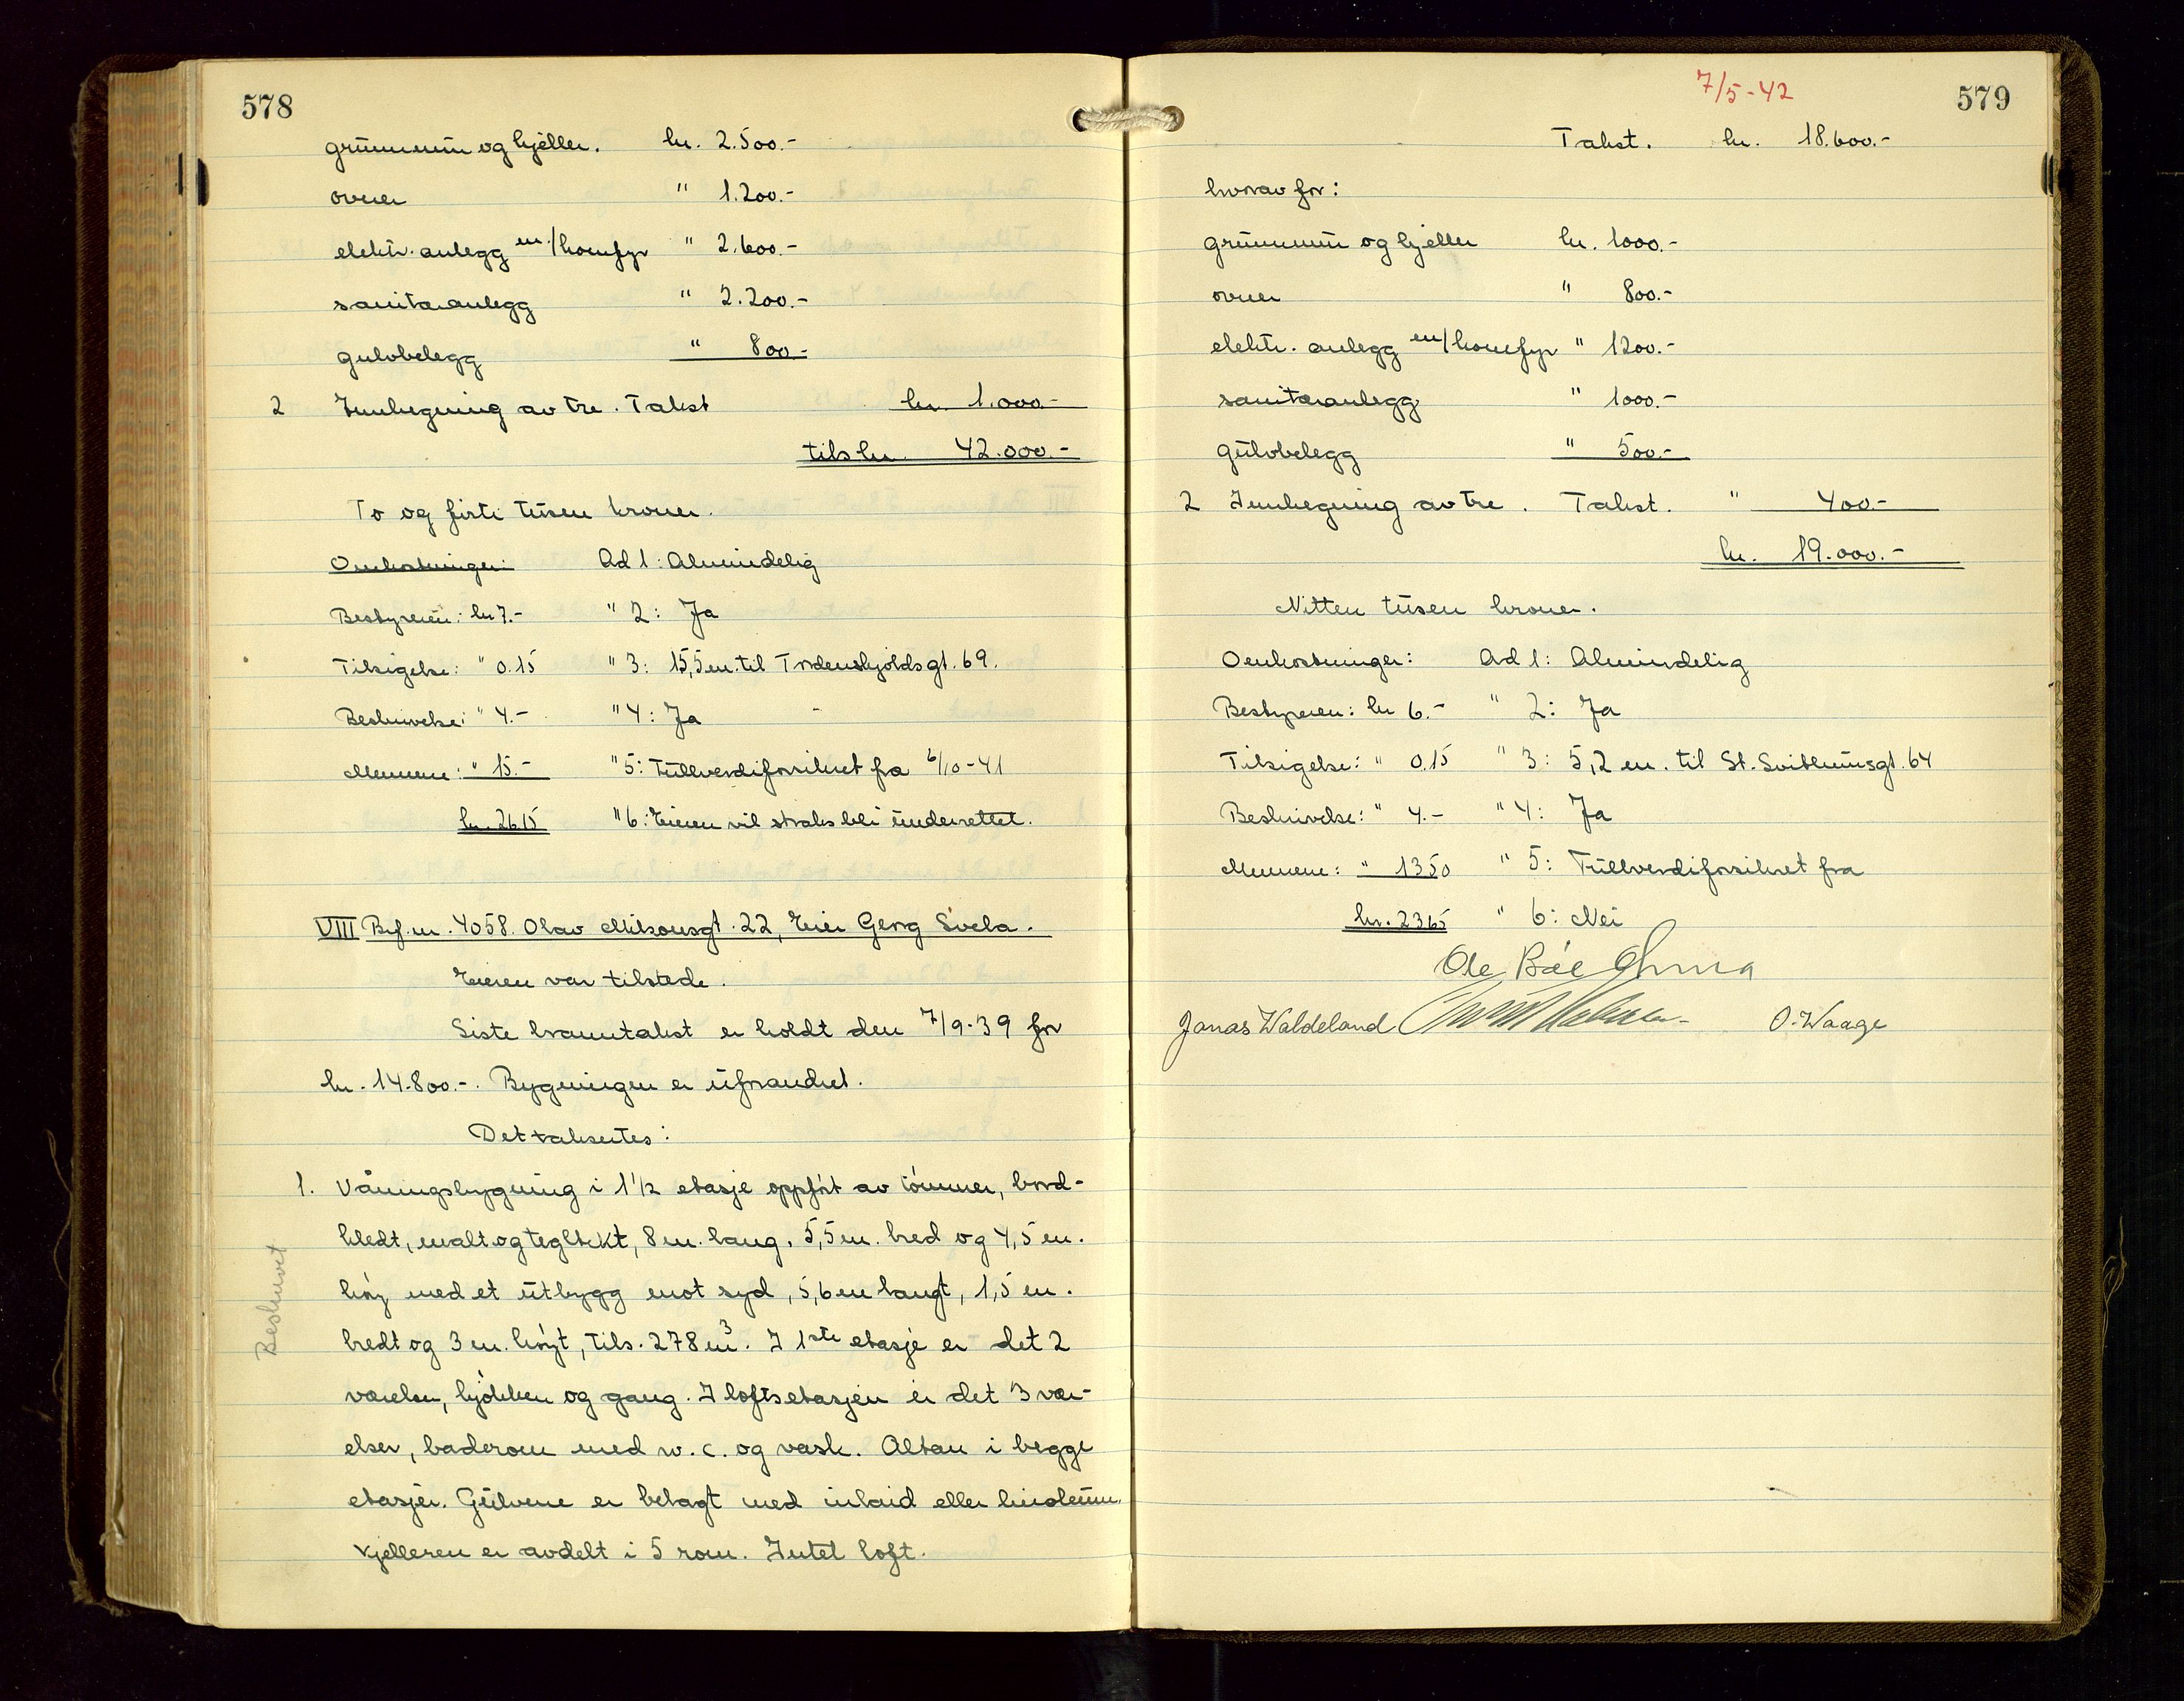 578
grunnmur og kjeller. kr. 2.500.-
ovner " 1.200.-
elektr. anlegg m/komfyr " 2.600.-
sanitæranlegg " 2.200.-
gulvbelegg " 800.-
2 Innhegning av tre. Takst kr. 1.000.-
tils kr. 42.000.-
To og firti tusen kroner.
Omkostninger: Ad 1: Almindelig
Bestyreren: kr 7.- " 2: Ja
Tilsigelse: " 0.15 " 3: 15,5 m. til Tordenskjoldsgt. 69.
Beskrivelse: " 4.- " 4: Ja
Mennene: " 15.- " 5: Fullverdiforsikret fra 6/10-41
kr. 26.15 " 6: Eieren vil straks bli underrettet.
VIII Brf. nr. 4058. Olav Nilsonsgt. 22, Eier Georg Svela.
Eieren var tilstede.
Siste branntakst er holdt den 7/9-39 for
kr. 14.800.-. Bygningen er uforandret.
Det takseres:
1. Våningsbygning i 1 1/2 etasje oppført av tømmer, bord-
kledt, malt og teglteekt, 8 m. lang, 5,5 m. bred og 4,5 m.
høy med et utbygg mot syd, 5,6 m langt, 1,5 m.
bredt og 3 m. høyt, tils. 278 m³. I 1ste etasje er det 2
værelser, kjøkken og gang. I loftsetasjen er det 3 vær-
elser, baderom med w.c. og vask. Altan i begge
etasjer. Gulvene er belagt med inlaid eller linoleum.
Kjelleren er avdelt i 5 rom. Intet loft.
Beskrevet
7/5-42
579
Takst. kr. 18.600.-
hvorav for:
grunnmur og kjeller kr. 1000.-
ovner " 800.-
elektr. anlegg m/komfyr " 1200.-
sanitæranlegg " 1000.-
gulvbelegg " 500.-
2 Innhegning av tre. Takst. " 400.-
kr. 19.000.-
Nitten tusen kroner.
Omkostninger: Ad 1: Almindelig
Bestyreren: kr 6.- " 2: Ja
Tilsigelse: " 0.15 " 3: 5,2 m. til St. Svithunsgt. 64
Beskrivelse: " 4.- " 4: Ja
Mennene: " 13.50 " 5: Fullverdiforsikret fra
kr. 23.65 " 6: Nei
Ole Bøe
Jonas Waldeland O. Waage